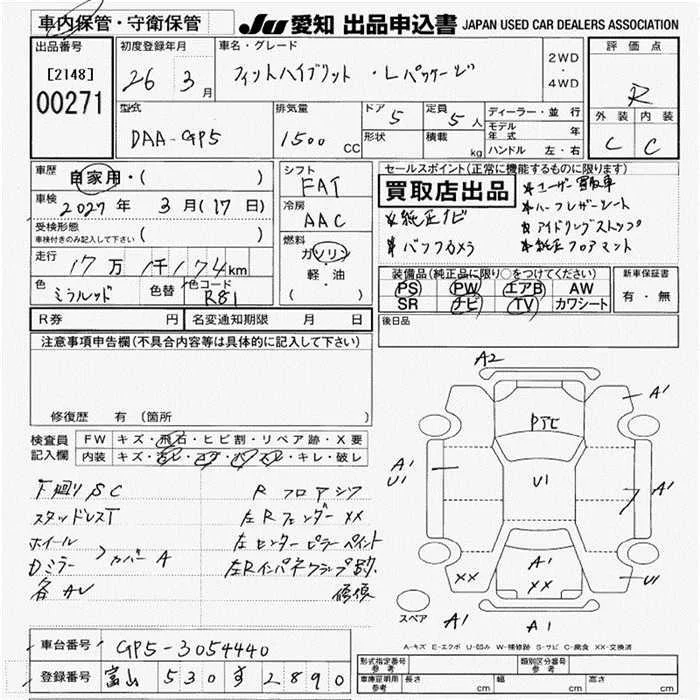 車内保管・守衛保管
JU 愛知 出品申込書 JAPAN USED CAR DEALERS ASSOCIATION
出品番号
[2148]
00271
初度登録年月
26 3月
車名・グレード
フィットハイブリット ・Lパッケージ
2WD
・
4WD
評価点
R
外装 内装
C C
型式
DAA-GP5
排気量
1500 CC
ドア 5
形状
定員 5人
積載 kg
ディーラー・並行
モデル年式 年
ハンドル 左・右
車歴
自家用・( )
車検
2027年 3月(17日)
受検形態
車検付きのみ記入して下さい ( )
走行
17万 1千174km
色 ミラノレッド 色替 色コード R81
シフト
FAT
冷房
AAC
燃料
ガソリン
・
軽・油
( )
セールスポイント(正常に機能するものに限ります)
買取店出品
*ユーザー買取車
*ハーフレザーシート
*純正ナビ
*アイドリングストップ
*バックカメラ
*純正フロアマット
装備品(純正品に限り○をつけてください)
PS PW エアB AW
SR ナビ TV カワシート
新車保証書
有・無
R券 円 名変通知期限 月 日
後日品
注意事項申告欄(不具合内容等は具体的に記入して下さい)
修復歴 有(箇所 )
検査員記入欄
FW キズ・飛石・ヒビ割・リペア跡・X要
内装 キズ・ヨレ・コゲ・穴・キレ・破レ
下廻りSC
スタッドレスT
ホイール
Dミラー カバーA
各AU
Rフロアシワ
左Rフェンダー XX
左センターピラーペイント
左Rインパネクランプ跡
修復
A2
A1
PTE
A1
U1
U1
A1
A1
XX
XX
U1
スペア
A1
A1
A-キズ E-エクボ U-凹み W-補修跡 S-サビ C-腐食 XX-交換済
車台番号 GP5-3054440
登録番号 富山 530 す 2890
形式指定番号
参考
類別区分番号
参考
車庫証明用
参考
長さ cm 幅 cm 高さ cm